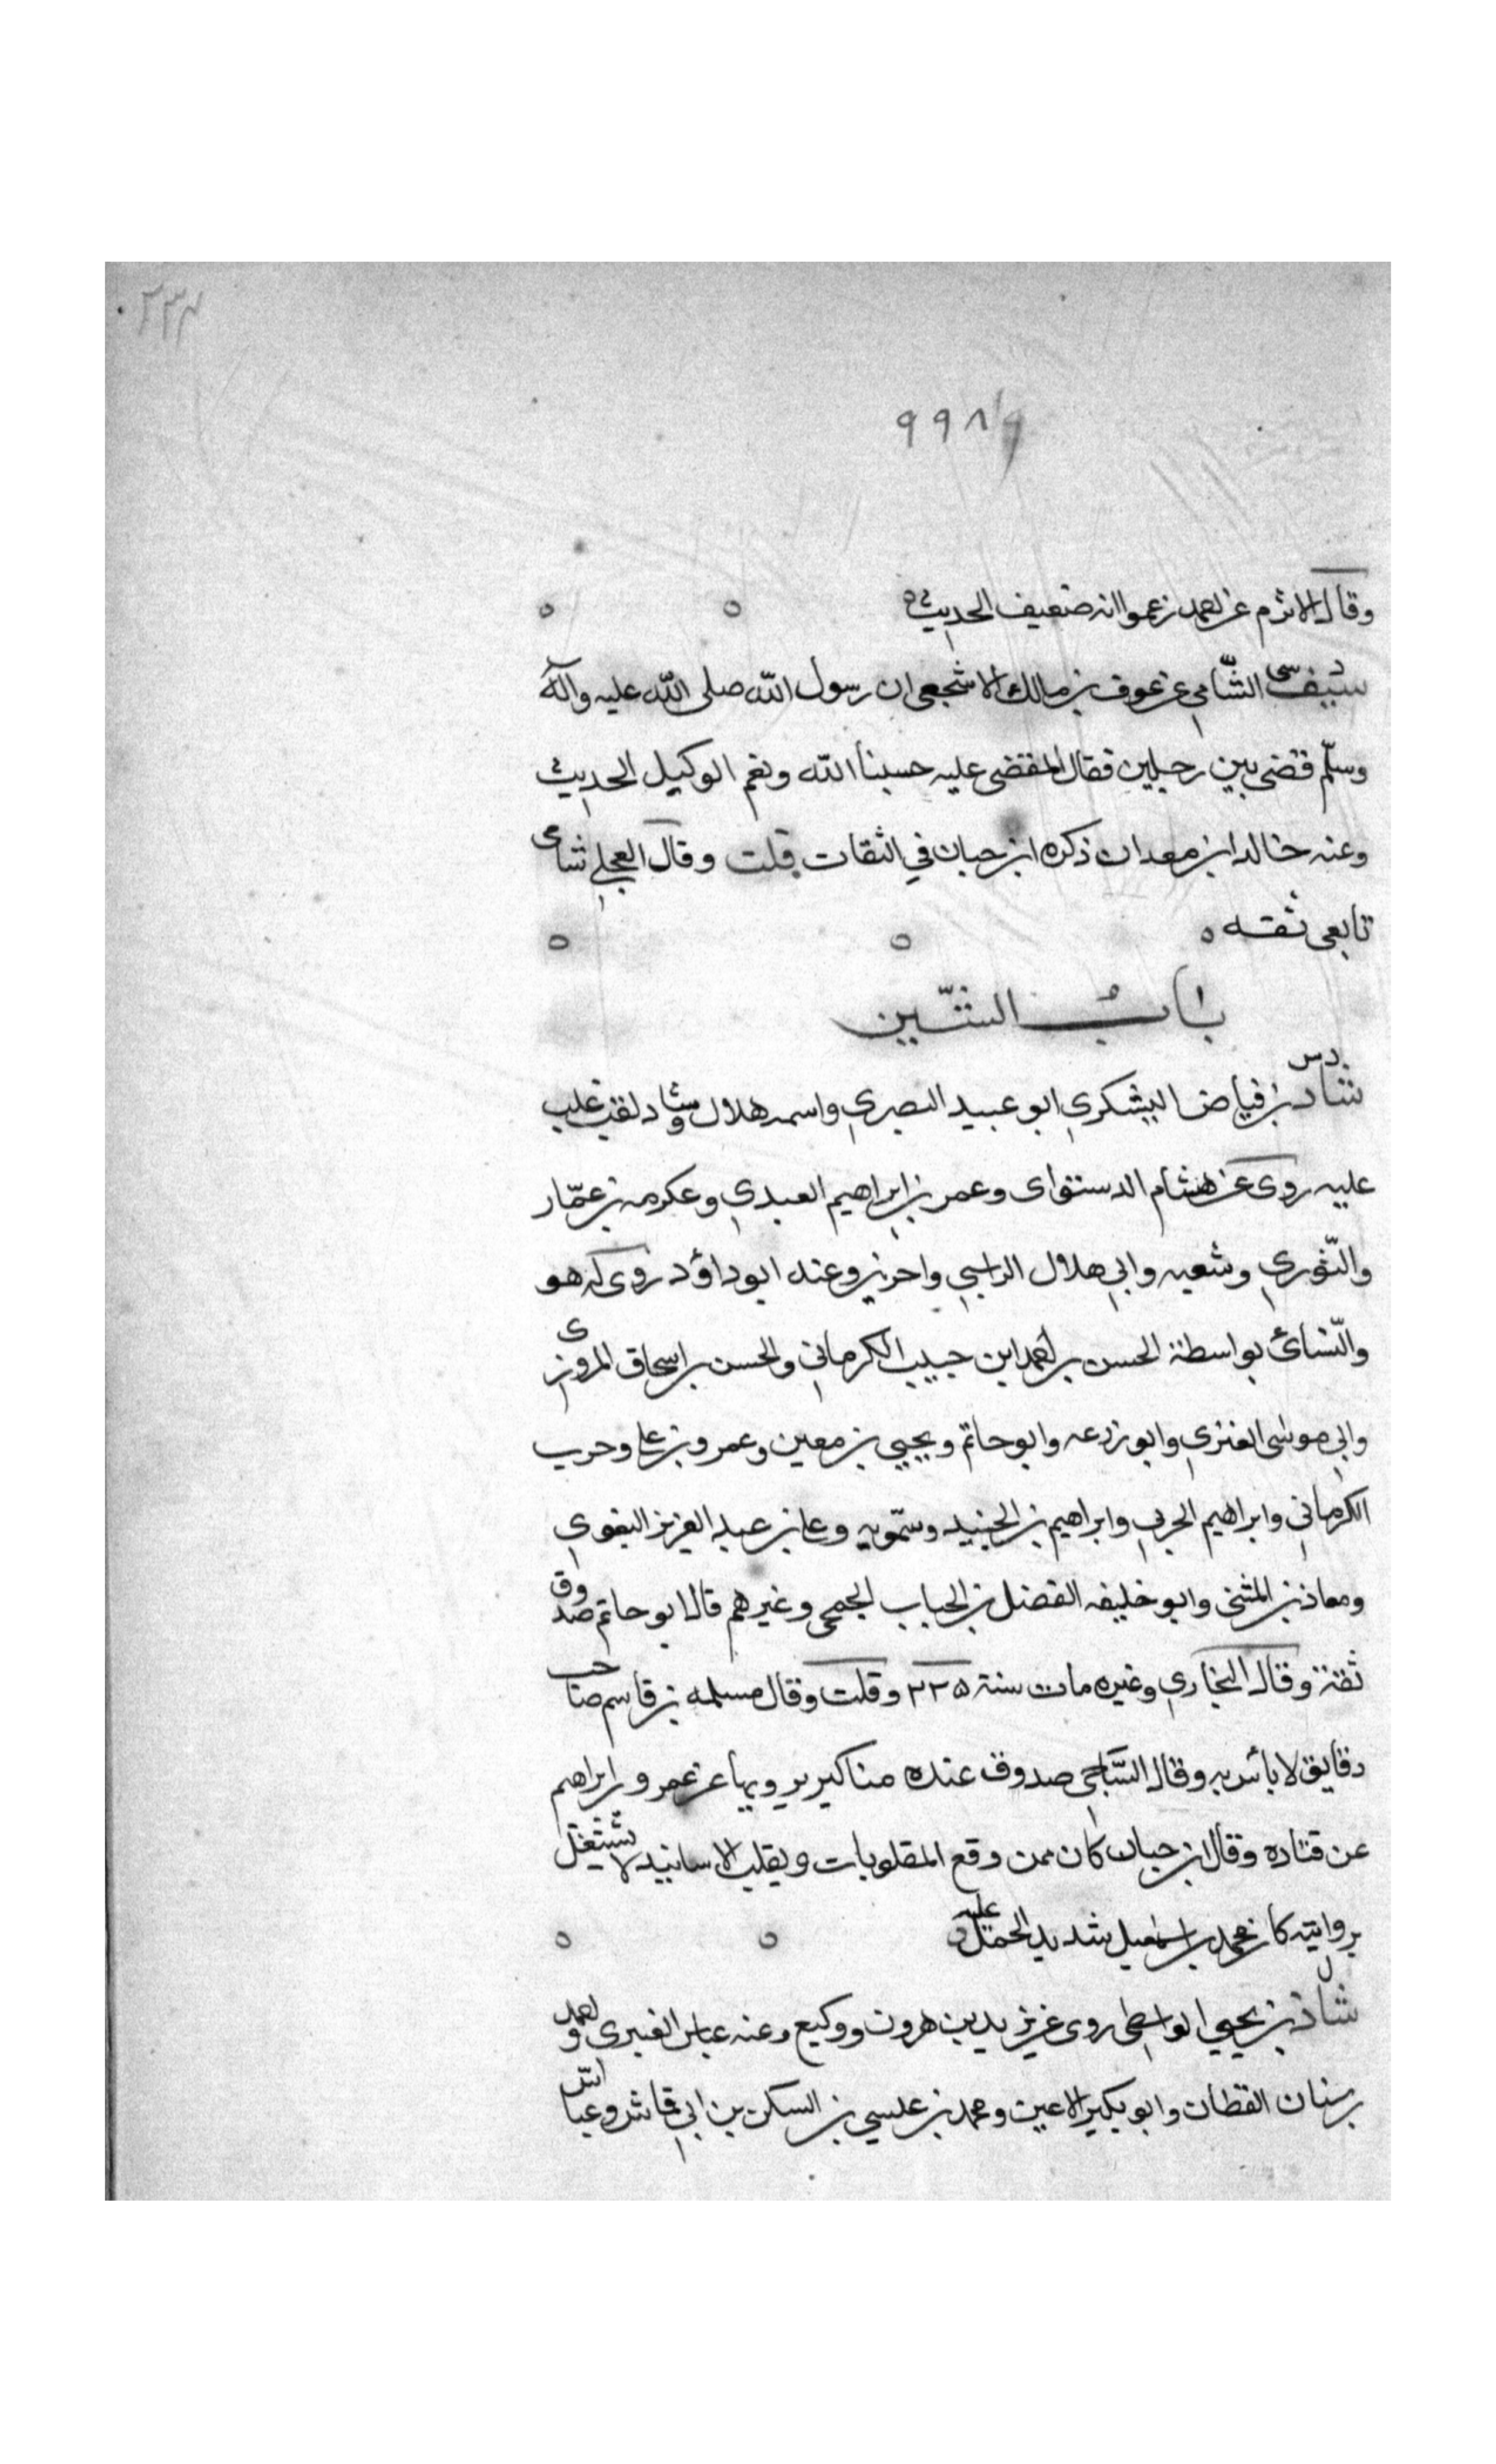 ٩٩٨٩
وقال الاثرم عن احمد زعموا انه ضعيف الحديث
د سى
سيف الشامي عن عوف بن مالك الاشجعي ان رسول الله صلى الله عليه وآله
وسلّم قضى بين رجلين فقال المقضى عليه حسبنا الله ونعم الوكيل الحديث
وعنه خالد ابن معدان ذكره ابن حبان في الثقات قلت وقال العجلي شامى
تابعي ثقه
باب الشّين
د س
شاد بن فياض اليشكري ابو عبيد البصري واسمه هلال وشاد لقب غلب
عليه روى عن هشام الدستواى وعمر بن ابراهيم العبدي وعكرمه بن عمّار
والثّوري وشعبه وابي هلال الراسبي واخرين وعنه ابو داؤد روى له هو
والنّسائ بواسطة الحسن بن احمد ابن حبيب الكرماني والحسن بن اسحاق المروزى
وابي موسى العنزي وابو زرعه وابو حاتم ويحيي بن معين وعمرو بن على وحرب
الكرماني وابراهيم الحربي وابراهيم بن الجنيد وسمّويه وعلى بن عبد العزيز البغوي
ومعاذ بن المثنى وابو خليفه الفضل بن الحباب الجمحي وغيرهم قال ابو حاتم صدوق
ثقة وقال البخاري وغيره مات سنة ٢٢٥ وقلت وقال مسلمه بن قاسم صاحب
دقايق لا باس به وقال السّاجي صدوق عنده مناكير يرويها عن عمرو بن ابراهيم
عن قتاده وقال ابن حبان كان ممن وقع المقلوبات ويقلب الاسانيد لا يشتغل
بروايته كان محمد بن اسمعيل شديد الحمل عليه
ل
شاذ بن يحيي الواسطي روى عن يزيد بن هرون ووكيع وعنه عباس العنبرى واحمد
بن سنان القطان وابو بكير الاعين ومحمد بن عيسي بن السكن بن ابي قماش وعباس